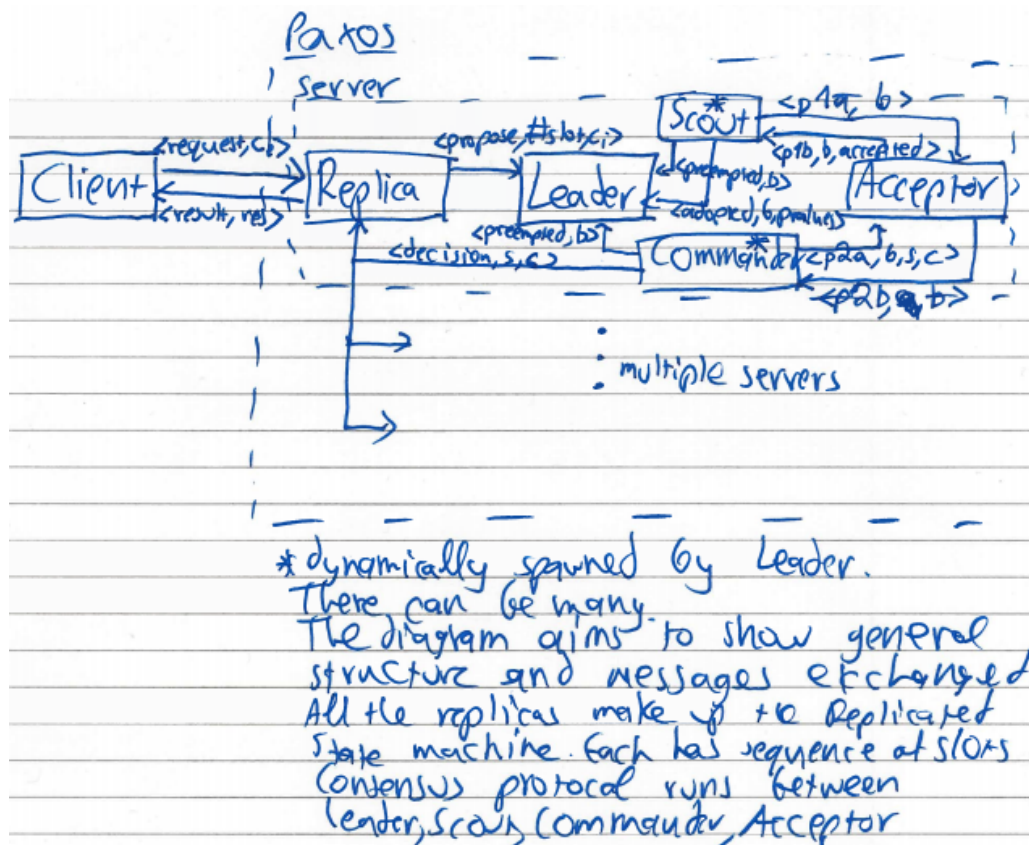 Paxos
server
Scout*
<p1a, b>
<request, c>
<propose, #slot, ci>
<p1b, b, accepted>
Client
Replica
Leader
<preempted, b>
Acceptor
<result, res>
<adopted, b, pvalues>
<preempted, b>
Commander*
<p2a, b, s, c>
<decision, s, c>
<p2b, b>
multiple servers
* dynamically spawned by Leader.
There can be many.
The diagram aims to show general
structure and messages exchanged
All the replicas make up the Replicated
State machine. Each has sequence of slots
Consensus protocol runs between
leader, Scout, Commander, Acceptor